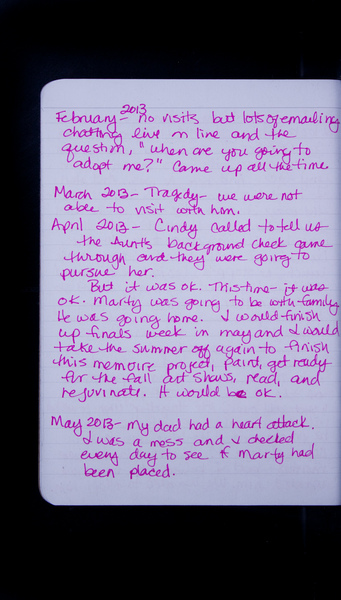 February 2013 - no visits but lots of emailing
chatting live on line and the
question, "when are you going to
adopt me?" Came up all the time.
March 2013 - Tragedy - we were not
able to visit with him.
April 2013 - Cindy called to tell us
the Aunts background check came
through and they were going to
pursue her.
But it was ok. This time - it was
ok. Marty was going to be with family.
He was going home. I would finish
up finals week in may and I would
take the summer off again to finish
this memoire project, paint, get ready
for the fall art shows, read, and
rejuvinate. It would be ok.
May 2013 - my dad had a heart attack.
I was a mess and I checked
every day to see if marty had
been placed.